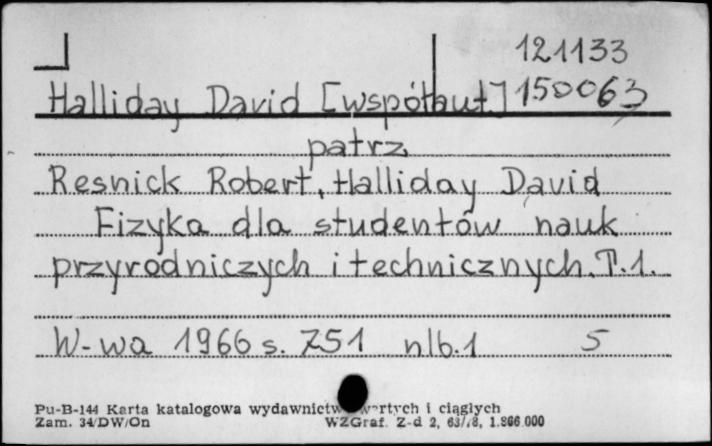 121133
Halliday David [współaut] 150063
patrz
Resnick Robert, Halliday David
Fizyka dla studentów nauk
przyrodniczych i technicznych. T. 1.
W-wa 1966 s. 751 nlb. 1 5
Pu-B-144 Karta katalogowa wydawnictw i ciągłych
Zam. 34/DW/On WZGraf. Z-d 2, 1.866.000